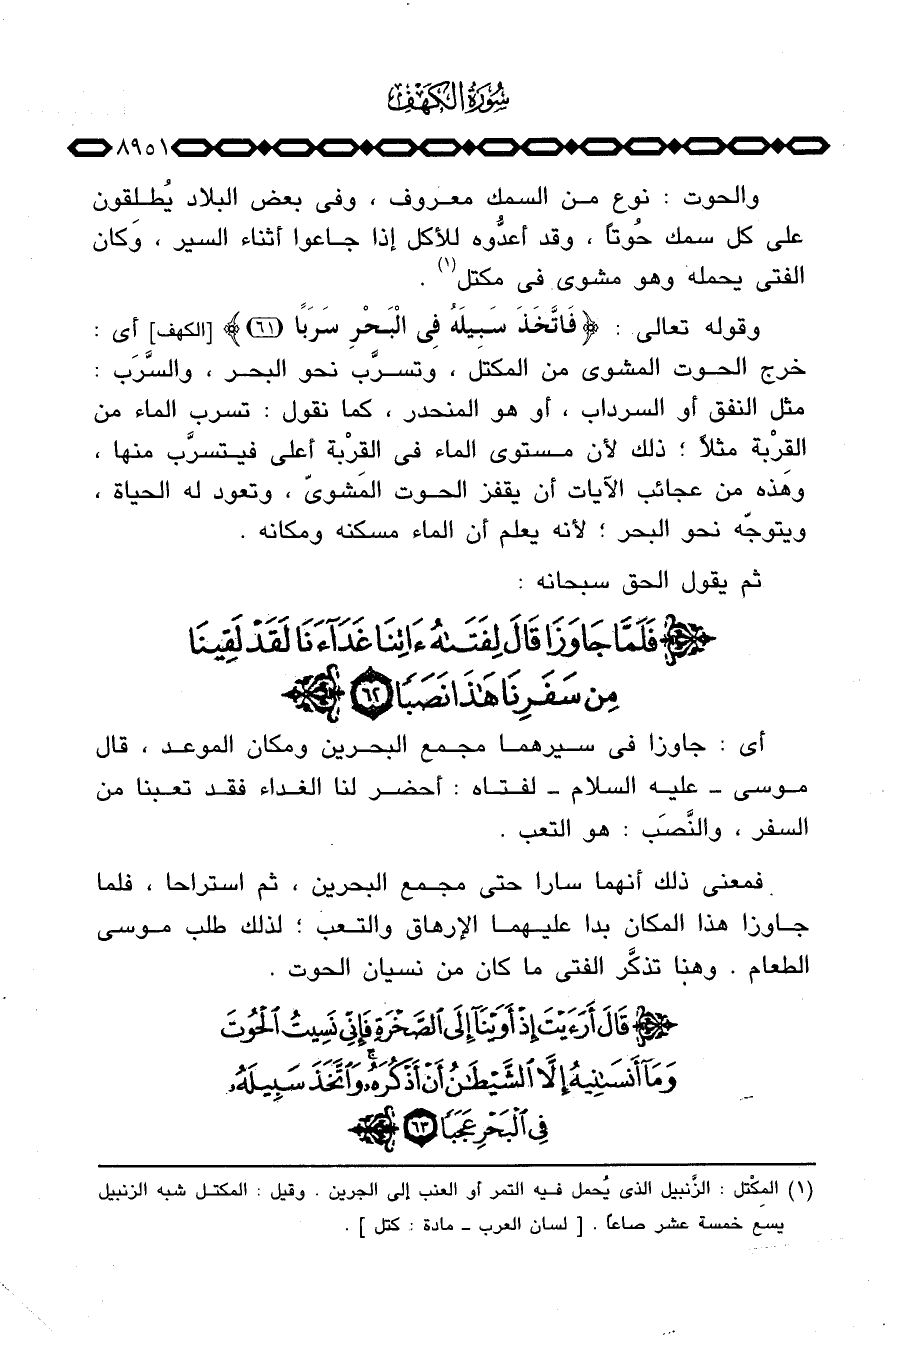 سُورَةُ الكَهْفِ
٨٩٥١
والحوت : نوع من السمك معروف ، وفى بعض البلاد يُطلقون
على كل سمك حُوتاً ، وقد أعدُّوه للأكل إذا جاعوا أثناء السير ، وكان
الفتى يحمله وهو مشوى فى مكتل(١) .
وقوله تعالى : ﴿ فَاتَّخَذَ سَبِيلَهُ فِى الْبَحْرِ سَرَبًا (٦١) ﴾ [الكهف] أى :
خرج الحوت المشوى من المكتل ، وتسرَّب نحو البحر ، والسَّرَب :
مثل النفق أو السرداب ، أو هو المنحدر ، كما نقول : تسرب الماء من
القرْبة مثلاً ؛ ذلك لأن مستوى الماء فى القرْبة أعلى فيتسرَّب منها ،
وهَذه من عجائب الآيات أن يقفز الحوت المشَوىّ ، وتعود له الحياة ،
ويتوجَّه نحو البحر ؛ لأنه يعلم أن الماء مسكنه ومكانه .
ثم يقول الحق سبحانه :
فَلَمَّا جَاوَزَا قَالَ لِفَتَىٰهُ ءَاتِنَا غَدَآءَنَا لَقَدْ لَقِينَا
مِن سَفَرِنَا هَٰذَا نَصَبًا ٦٢
أى : جاوزا فى سيرهما مجمع البحرين ومكان الموعد ، قال
موسى - عليه السلام - لفتاه : أحضر لنا الغداء فقد تعبنا من
السفر ، والنَّصَب : هو التعب .
فمعنى ذلك أنهما سارا حتى مجمع البحرين ، ثم استراحا ، فلما
جاوزا هذا المكان بدا عليهما الإرهاق والتعب ؛ لذلك طلب موسى
الطعام . وهنا تذكَّر الفتى ما كان من نسيان الحوت .
قَالَ أَرَءَيْتَ إِذْ أَوَيْنَآ إِلَى ٱلصَّخْرَةِ فَإِنِّى نَسِيتُ ٱلْحُوتَ
وَمَآ أَنسَىٰنِيهُ إِلَّا ٱلشَّيْطَٰنُ أَنْ أَذْكُرَهُۥ ۚ وَٱتَّخَذَ سَبِيلَهُۥ
فِى ٱلْبَحْرِ عَجَبًا ٦٣
(١) المكْتل : الزَّنبيل الذى يُحمل فيه التمر أو العنب إلى الجرين . وقيل : المكتل شبه الزنبيل
يسع خمسة عشر صاعاً . [ لسان العرب - مادة : كتل ] .